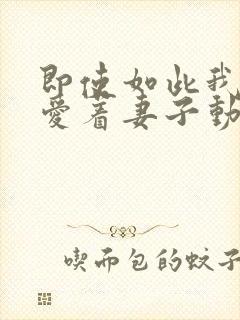 即使如此我
愛着妻子動
喫而包的蚊子